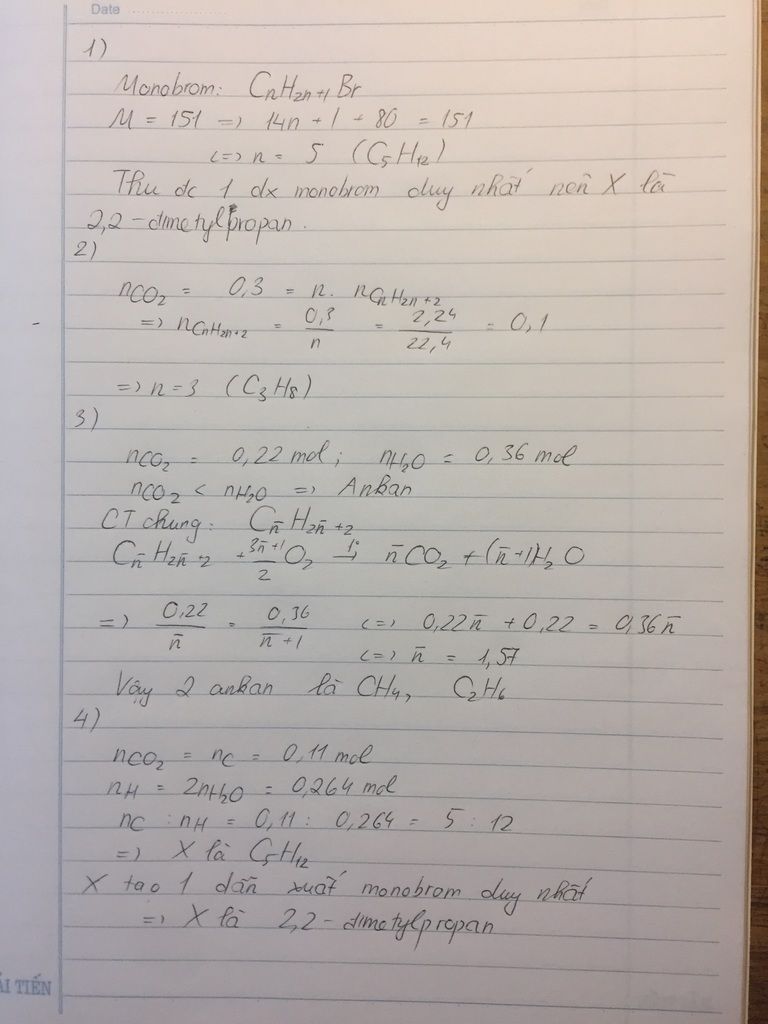 Date
1)
Monobrom: CnH2n+1 Br
M = 151 => 14n + 1 + 80 = 151
<=> n = 5 (C5H12)
Thu đc 1 dx monobrom duy nhất nên X là
2,2-đimetylpropan.
2)
nCO2 = 0,3 = n. nCnH2n+2
=> nCnH2n+2 = 0,3/n = 2,24/22,4 = 0,1
=> n = 3 (C3H8)
3)
nCO2 = 0,22 mol; nH2O = 0,36 mol
nCO2 < nH2O => Ankan
CT chung: Cn̄H2n̄+2
Cn̄H2n̄+2 + 3n̄+1/2 O2 t°→ n̄CO2 + (n̄+1)H2O
=> 0,22/n̄ = 0,36/n̄+1 <=> 0,22n̄ + 0,22 = 0,36n̄
<=> n̄ = 1,57
Vậy 2 ankan là CH4, C2H6
4)
nCO2 = nC = 0,11 mol
nH = 2nH2O = 0,264 mol
nC : nH = 0,11 : 0,264 = 5 : 12
=> X là C5H12
X tạo 1 dẫn xuất monobrom duy nhất
=> X là 2,2-đimetylpropan
ẢI TIẾN